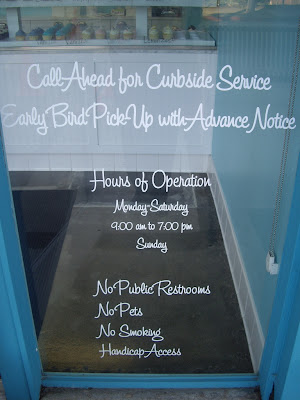 Call Ahead for Curbside Service
Early Bird Pick-Up with Advance Notice
Hours of Operation
Monday-Saturday
9:00 am to 7:00 pm
Sunday
No Public Restrooms
No Pets
No Smoking
Handicap Access